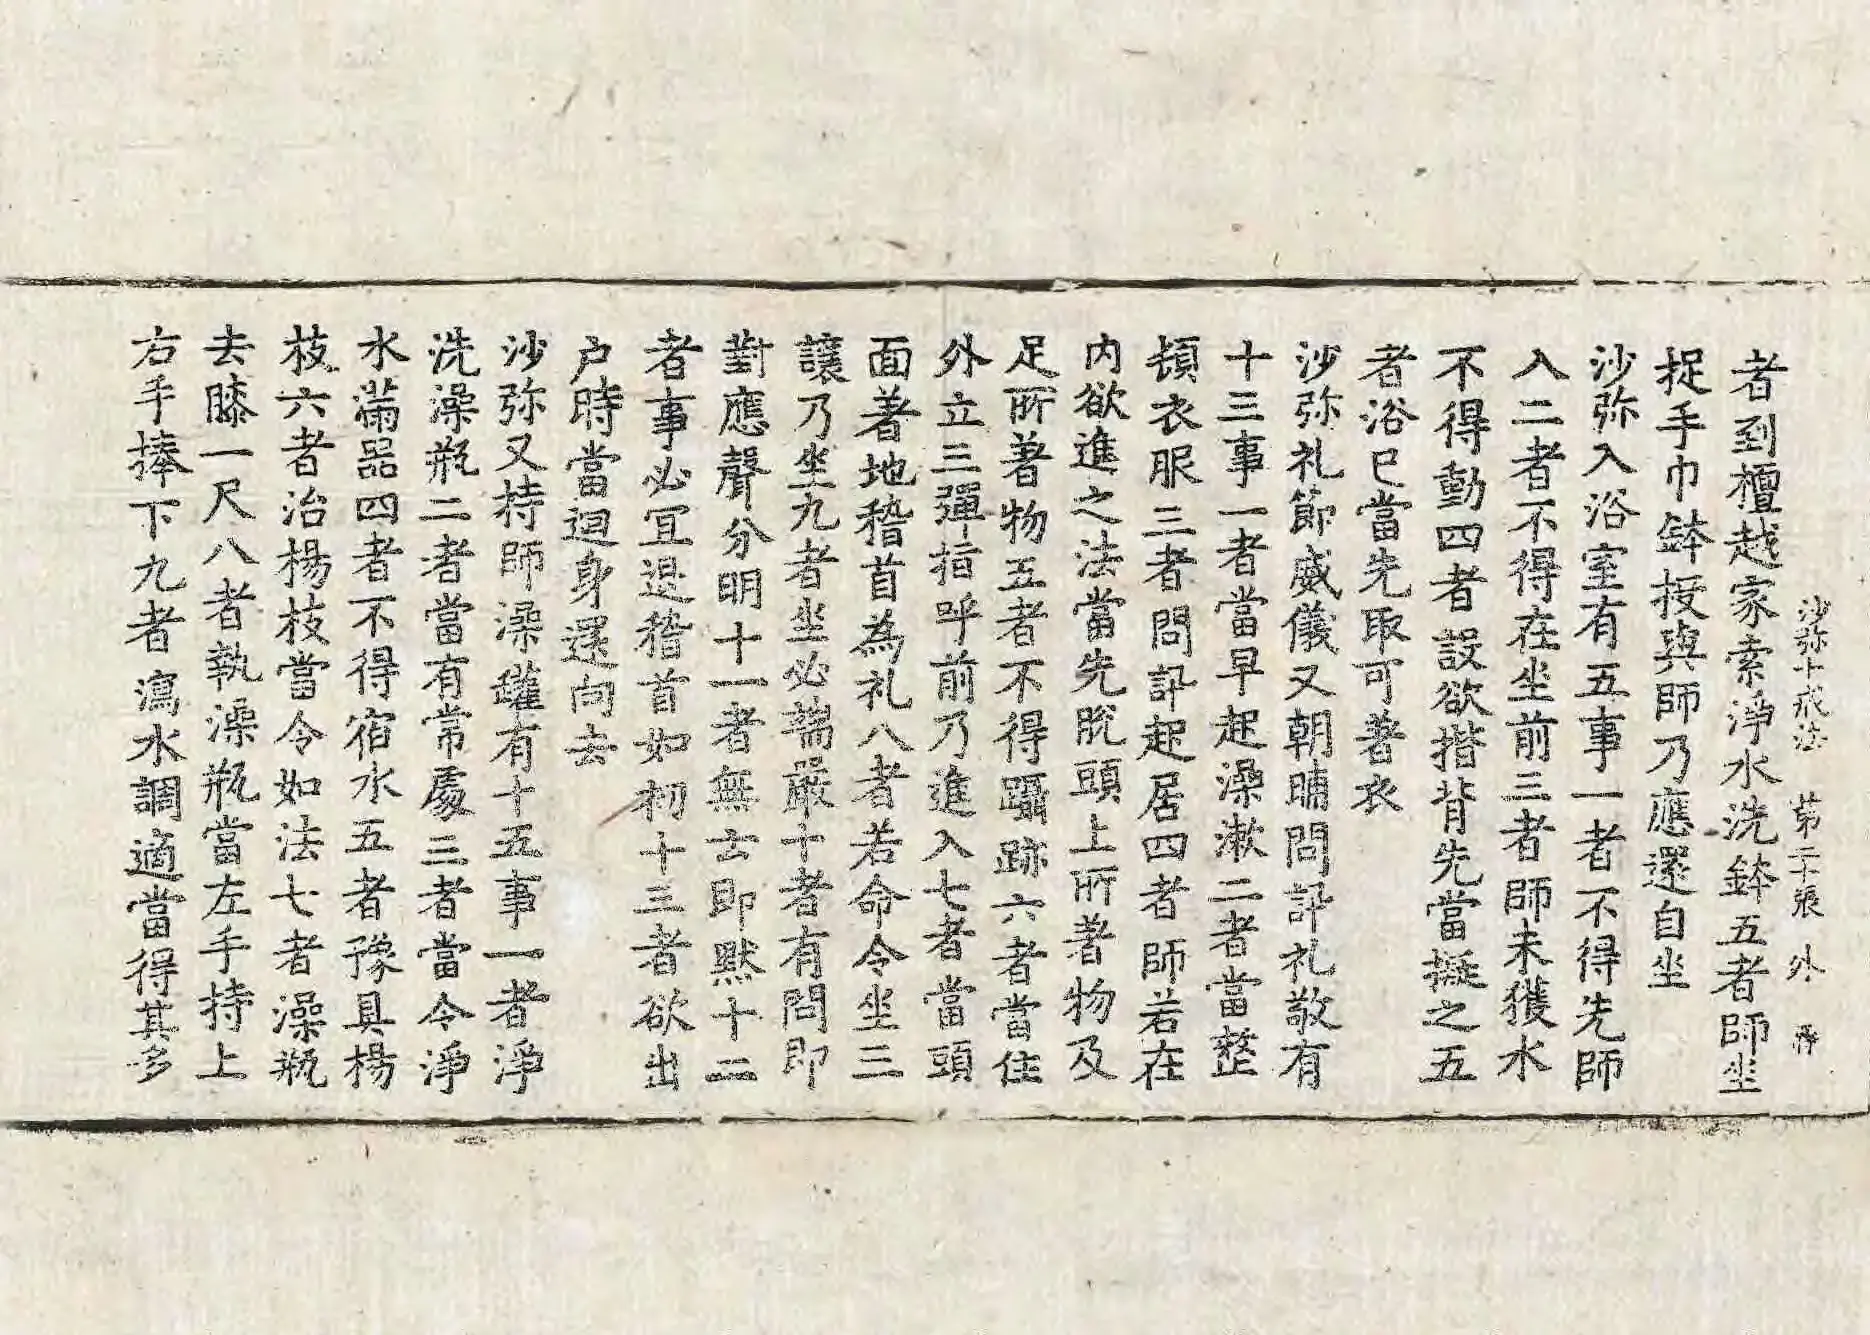 沙弥十戒法 第二十張 外
者到檀越家索淨水洗鉢五者師坐
捉手巾鉢授與師乃應還自坐
沙弥入浴室有五事一者不得先師
入二者不得在坐前三者師未獲水
不得動四者設欲揩背先當擬之五
者浴已當先取可著衣
沙弥礼節威儀又朝晡問訊礼敬有
十三事一者當早起澡漱二者當整
頓衣服三者問訊起居四者師若在
内欲進之法當先脫頭上所著物及
足所著物五者不得躡跡六者當住
外立三彈指呼前乃進入七者當頭
面著地稽首為礼八者若命令坐三
讓乃坐九者坐必端嚴十者有問即
對應聲分明十一者無云即默十二
者事必冝退稽首如初十三者欲出
户時當迴身還向去
沙弥又持師澡罐有十五事一者淨
洗澡瓶二者當有常處三者當令淨
水滿器四者不得宿水五者豫具楊
枝六者治楊枝當令如法七者澡瓶
去膝一尺八者執澡瓶當左手持上
右手捧下九者瀉水調適當得其多